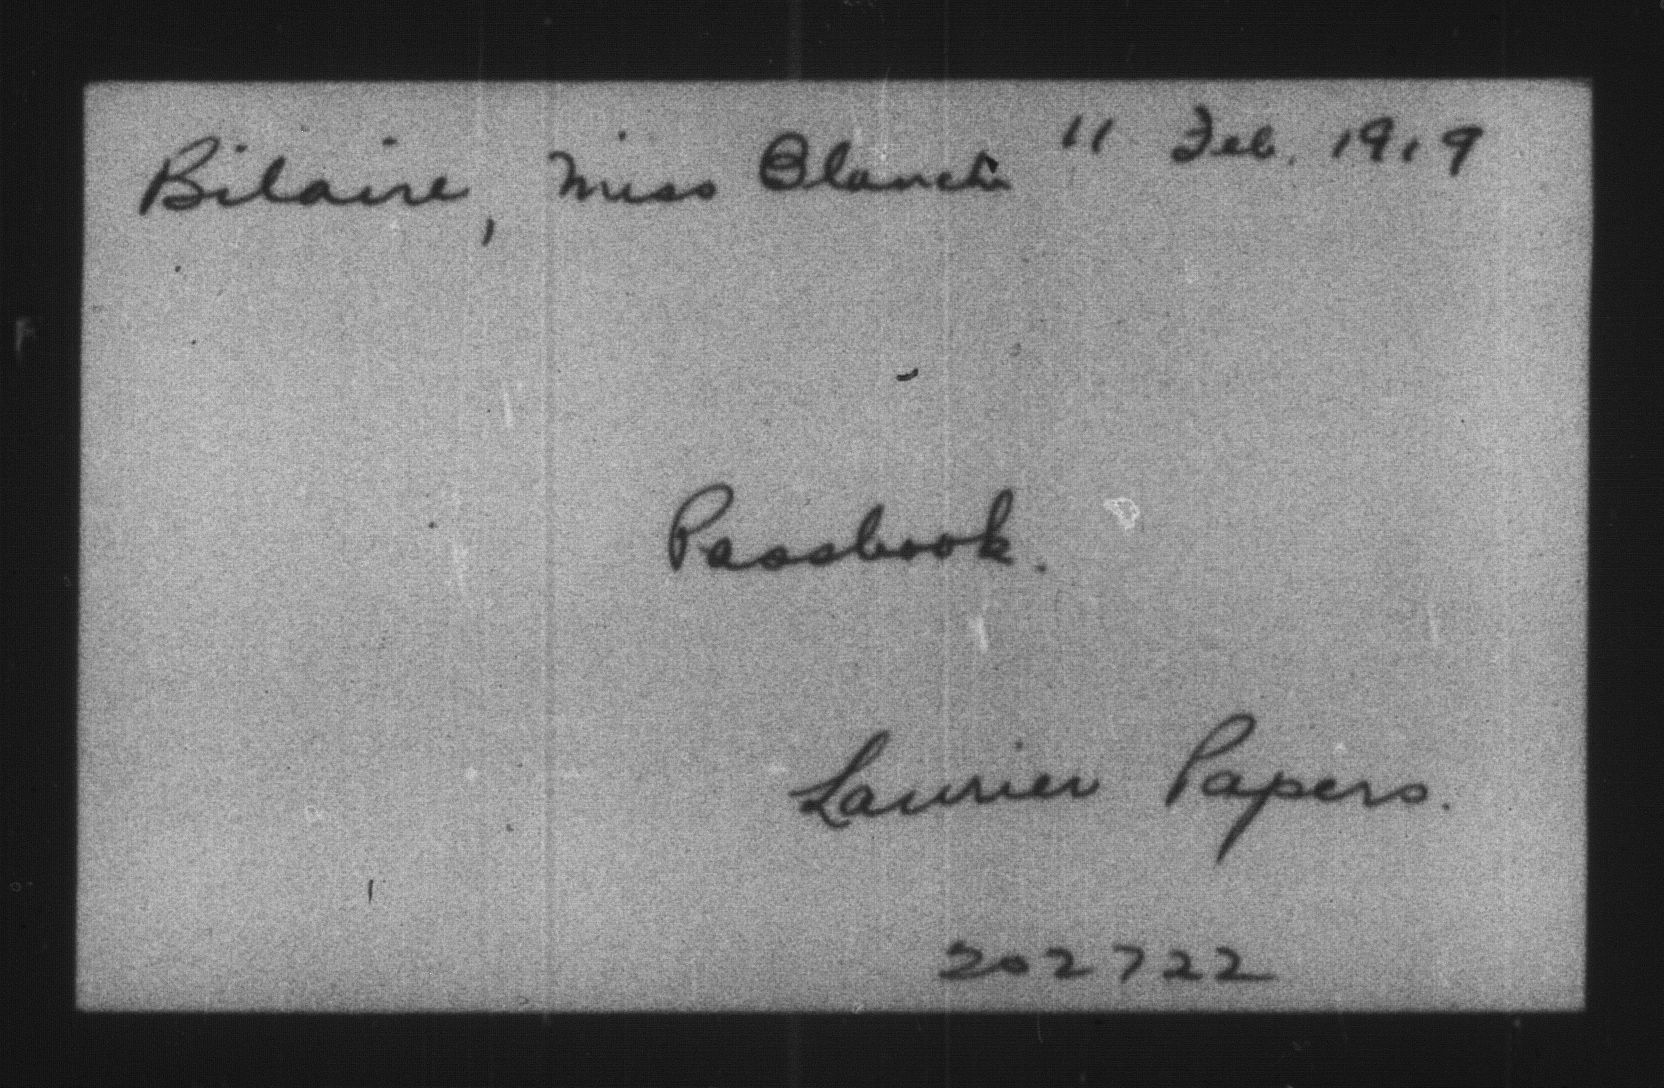 Bilaire, Miss Blanche 11 Feb. 1919
Passbook.
Laurier Papers.
202722